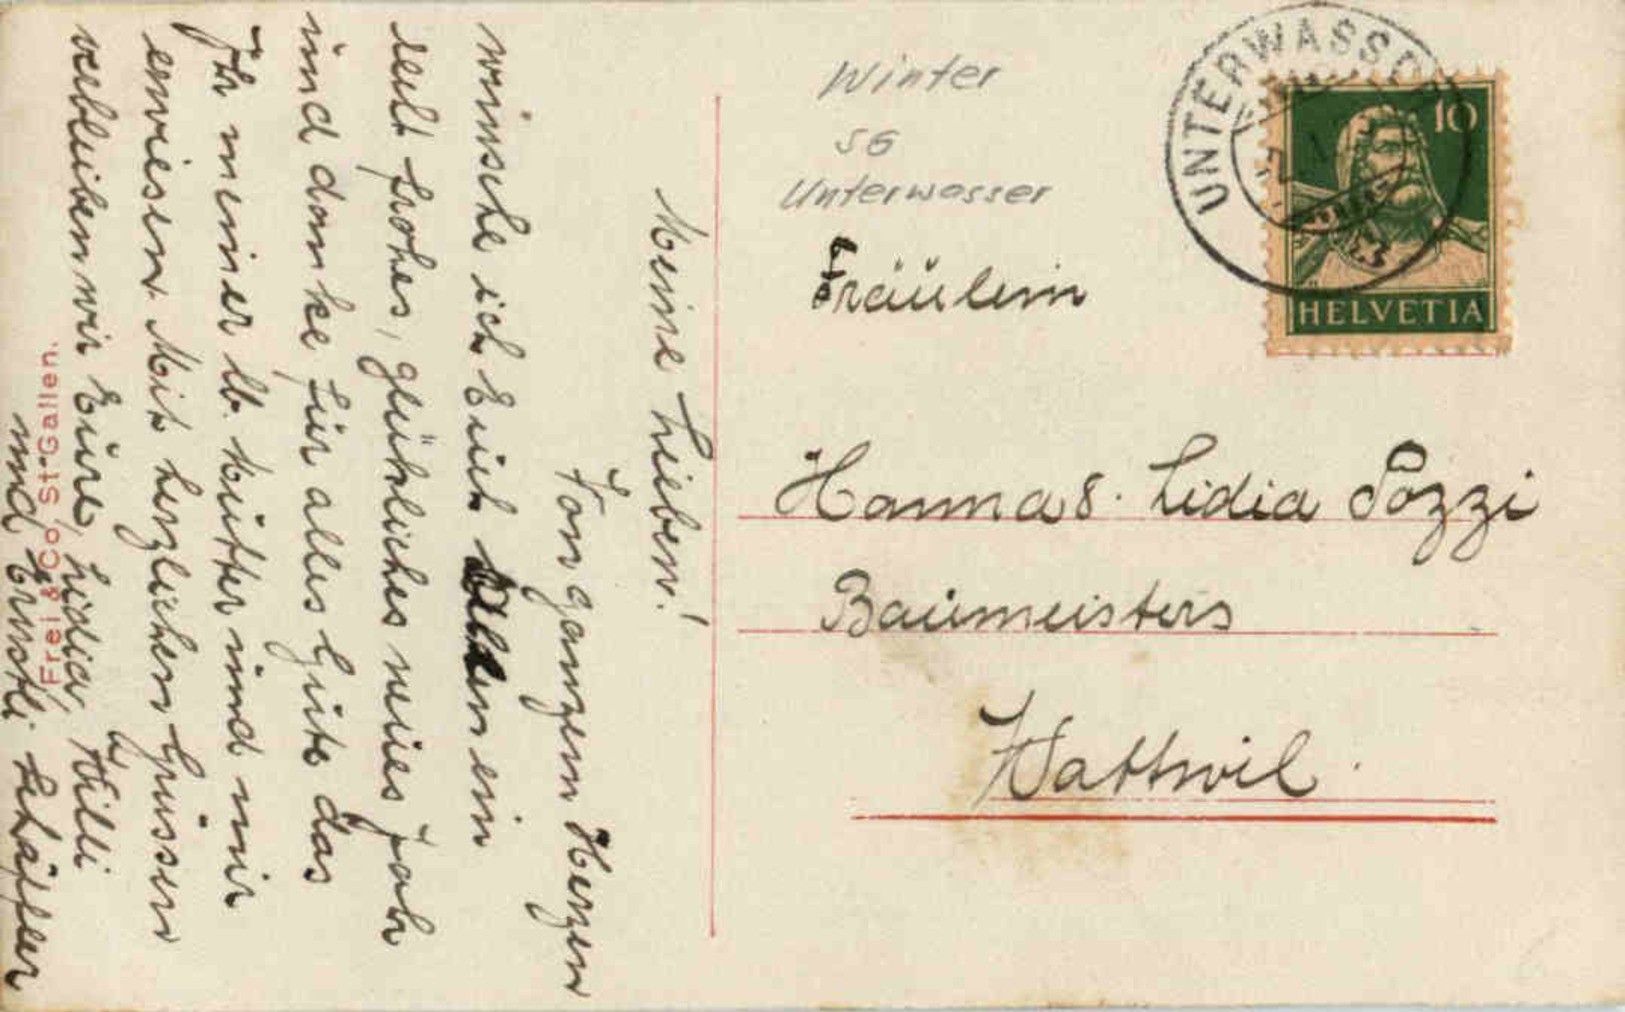 Meine Lieben!
Von ganzem Herzen
wünsche ich Euch allen ein
recht frohes, glückliches neues Jahr
und danke für alles Gute das
Ihr meiner lb. Mutter und mir
erwiesen. Mit herzlichen Grüssen
verbleiben wir Eure, Lidia, Willi
und Ernstli Schäffer
Frei & Co St. Gallen.
Winter
SG
Unterwasser
UNTERWASSER
10
HELVETIA
Fräulein
Hanna & Lidia Pozzi
Baumeisters
Wattwil.